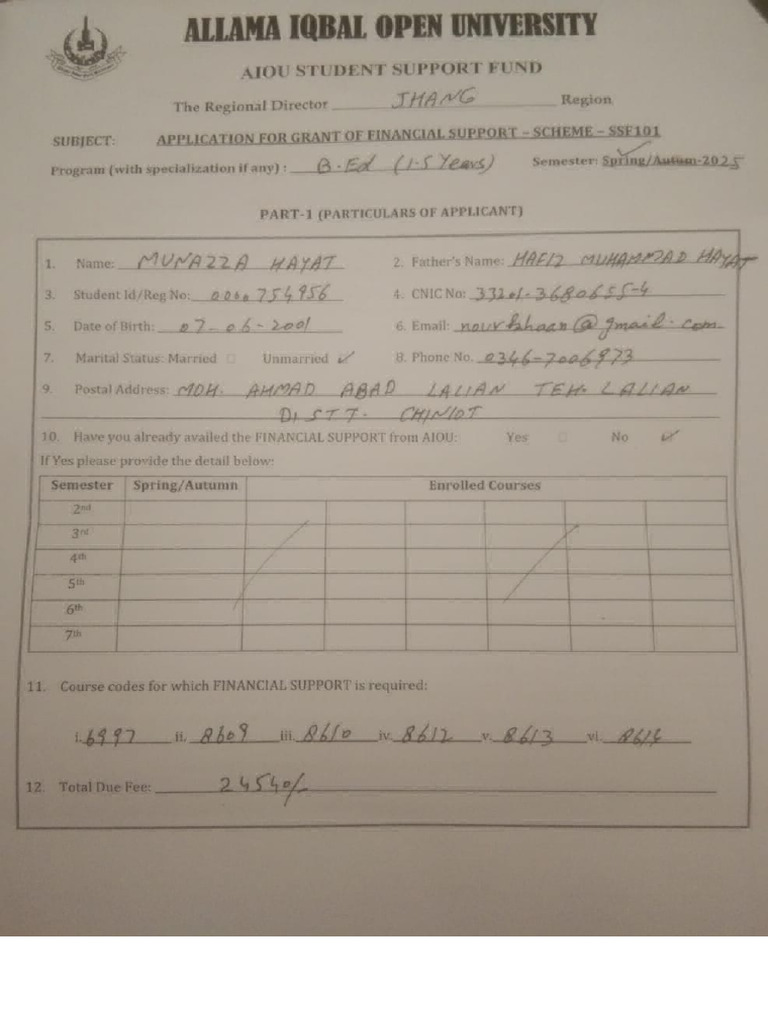 ALLAMA IQBAL OPEN UNIVERSITY
AIOU STUDENT SUPPORT FUND
The Regional Director JHANG Region
SUBJECT: APPLICATION FOR GRANT OF FINANCIAL SUPPORT – SCHEME – SSF101
Program (with specialization if any) : B.Ed (1.5 Years) Semester: Spring/Autum-2025
PART-1 (PARTICULARS OF APPLICANT)
1. Name: MUNAZZA HAYAT 2. Father's Name: HAFIZ MUHAMMAD HAYAT
3. Student Id/Reg No: 0000754956 4. CNIC No: 33201-3680655-4
5. Date of Birth: 07-06-2001 6. Email: @gmail.com
7. Marital Status: Married Unmarried ✓ 8. Phone No. 0346-7006973
9. Postal Address: MOH. AHMAD ABAD LALIAN TEH. LALIAN
DISTT. CHINIOT
10. Have you already availed the FINANCIAL SUPPORT from AIOU: Yes No ✓
If Yes please provide the detail below:
Semester Spring/Autumn Enrolled Courses
2nd
3rd
4th
5th
6th
7th
11. Course codes for which FINANCIAL SUPPORT is required:
i. 6997 ii. 8609 iii. 8610 iv. 8612 v. 8613 vi. 8614
12. Total Due Fee: 24540/-